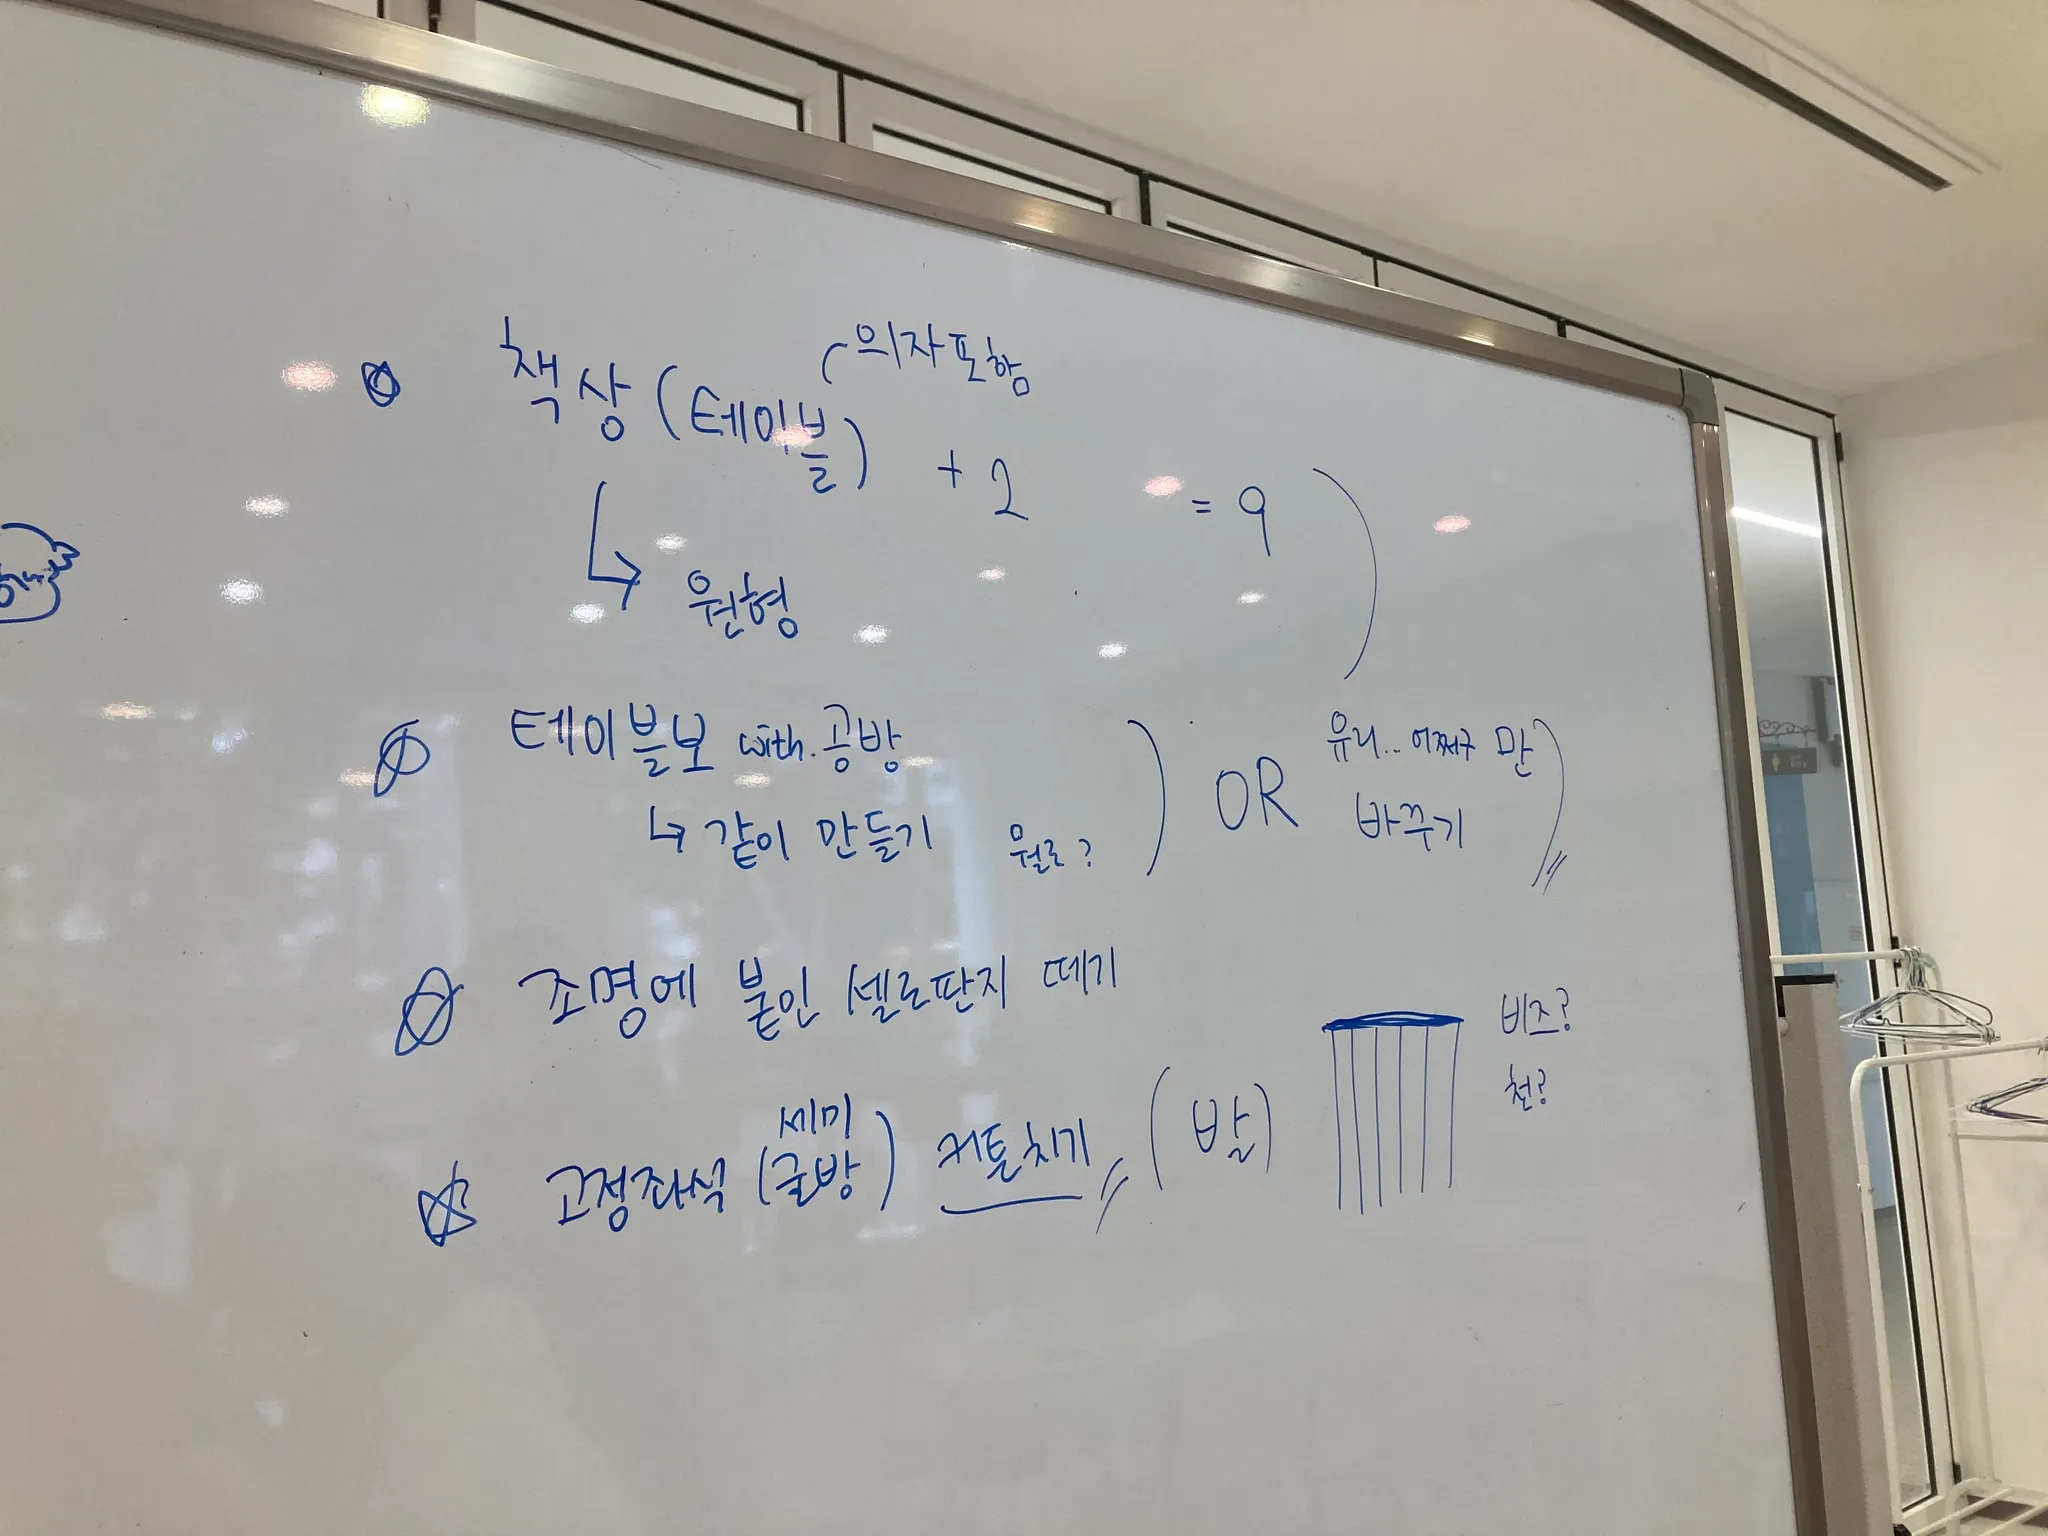 의자포함
책상(테이블) + 2 = 9
원형
테이블보 with. 공방
같이 만들기 뭘로?
OR
유리... 어쩌구 만
바꾸기
조명에 붙인 셀로판지 떼기
세미
고정좌석 (글방) 커튼치기 (발)
비즈?
천?